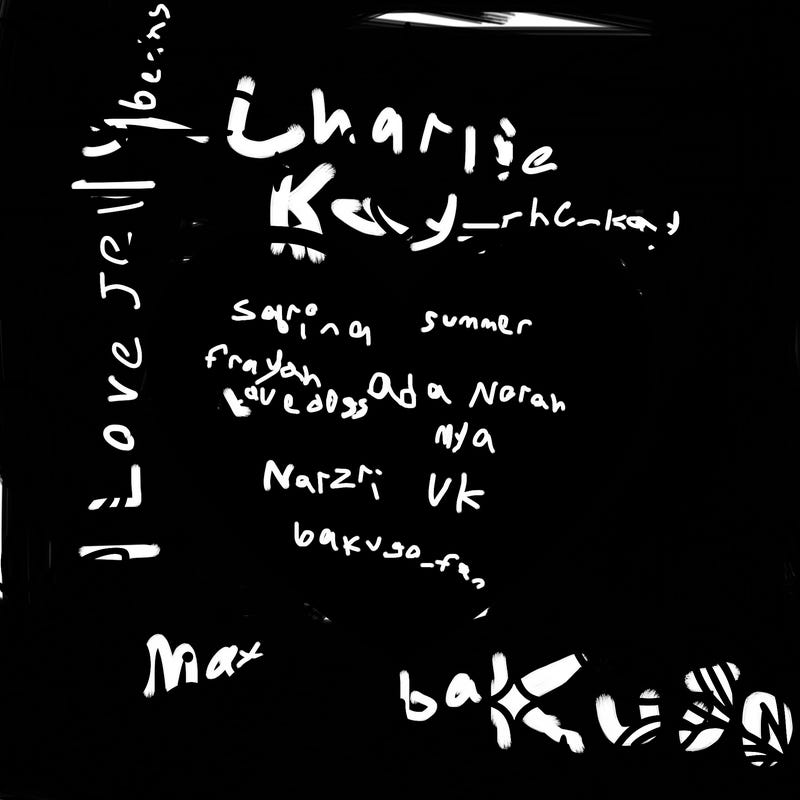 I Love Jelly beans
Charlie
Kay_rhc_kay
sarina summer
frayah
Lovedogs Ada Norah
Mya
Narzri VK
bakugo_fan
Max
baKugo